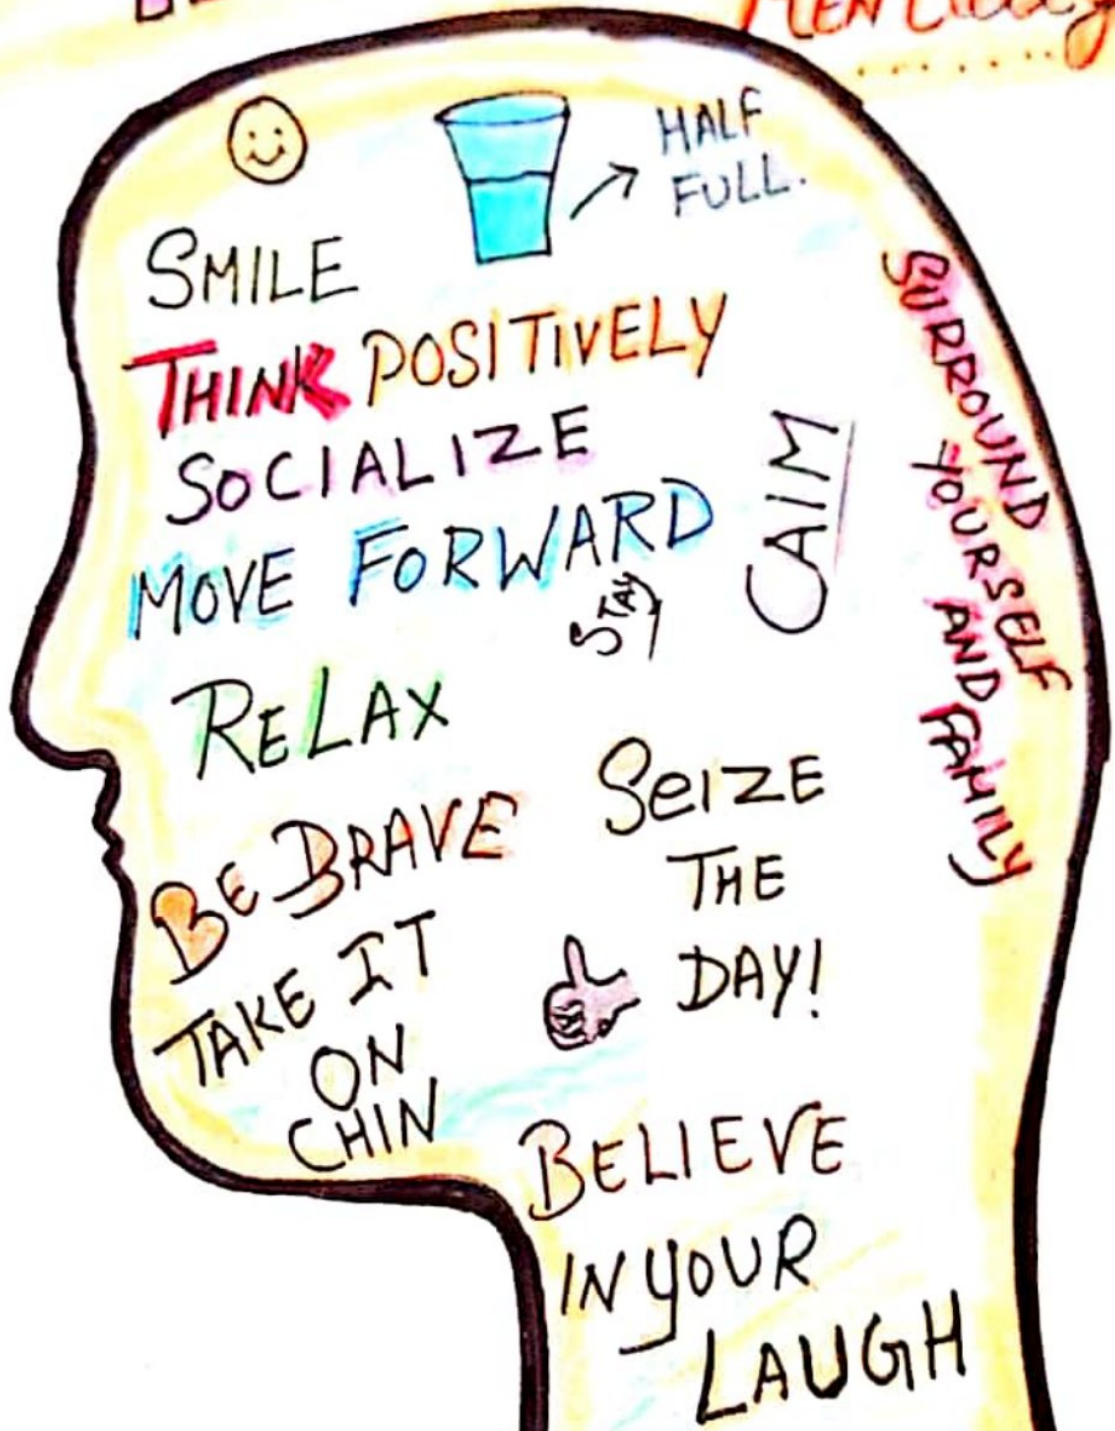 HALF
FULL.
SMILE
THINK POSITIVELY
SOCIALIZE
MOVE FORWARD
STAY
CAlM
SURROUND
YOURSELF
AND
FAMILY
RELAX
BE BRAVE
SEIZE
THE
DAY!
TAKE IT
ON
CHIN
BELIEVE
IN YOUR
LAUGH